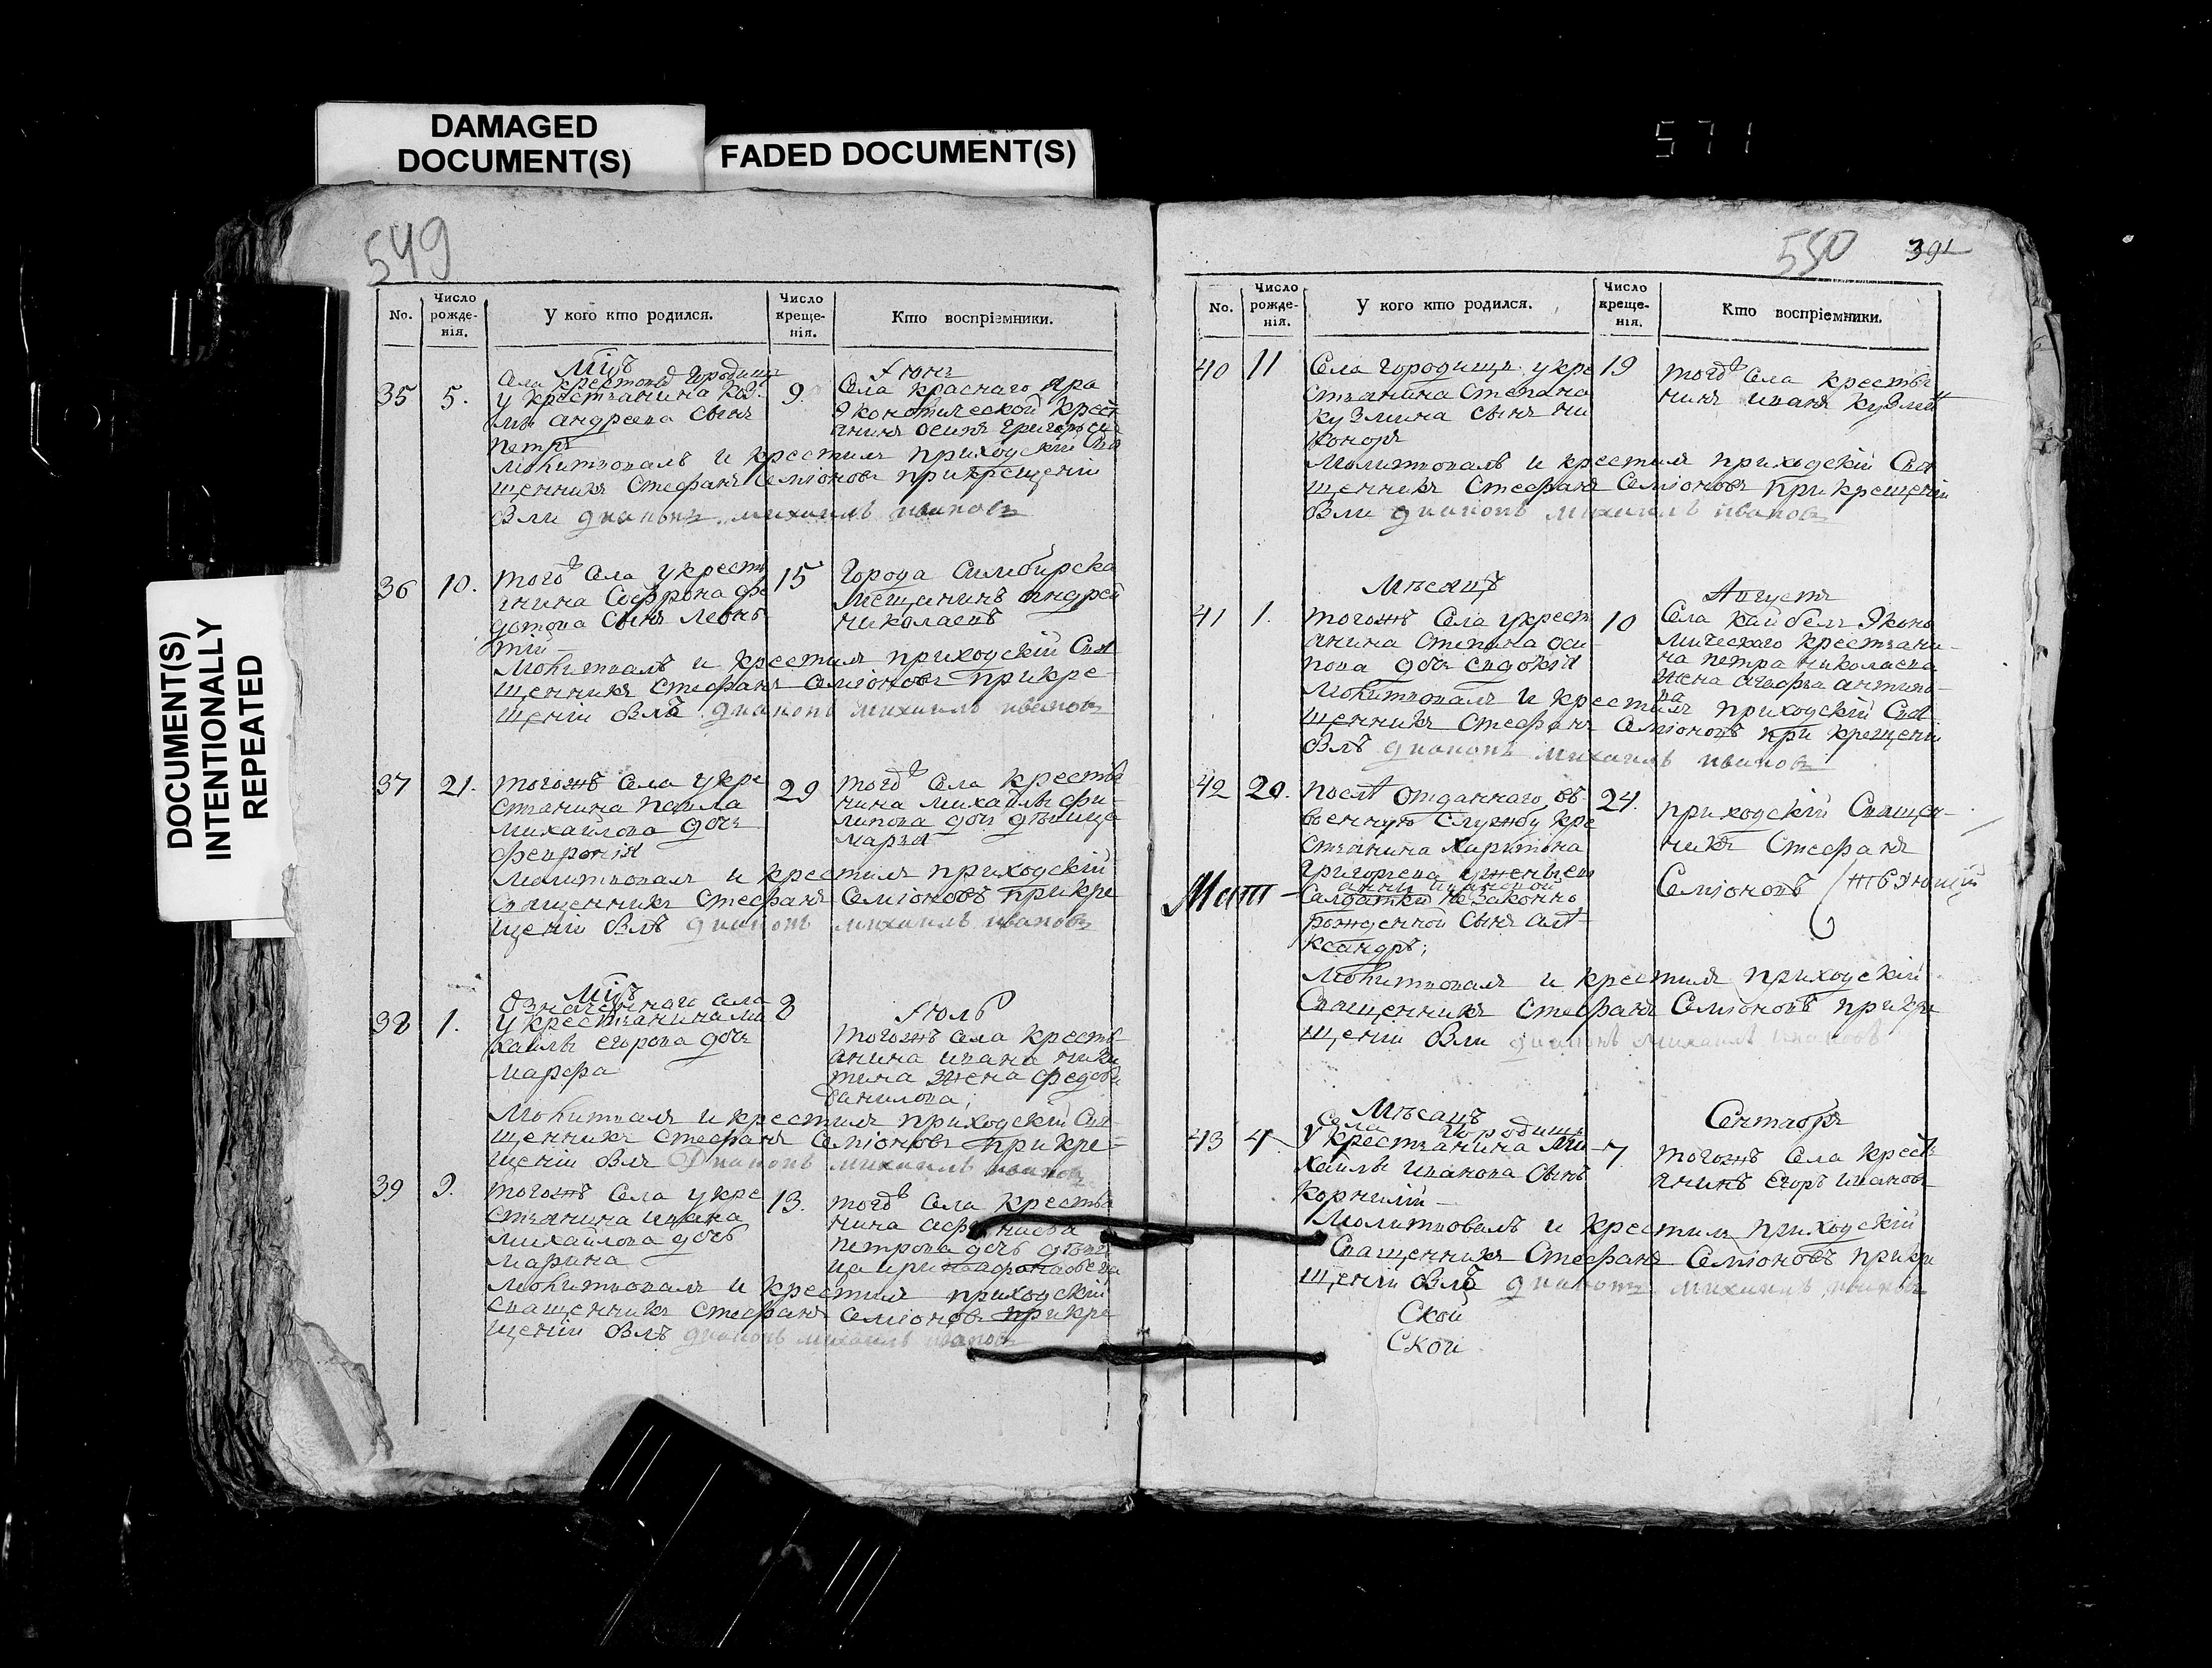 DAMAGED
DOCUMENT(S)
FADED DOCUMENT(S)
571
DOCUMENT(S)
INTENTIONALLY
REPEATED
549
No.
Число
рожде-
нія.
У кого кто родился.
Число
креще-
нія.
Кто воспріемники.
Мцъ
Іюнь
35
5.
Села Городищ
у крестьянина Коз
мы андреева сынъ
петръ
9.
Села краснаго яра
Экономической крест
янинъ осипъ григорьевъ
Молитвовалъ и крестилъ приходскій Свя
щенникъ Стефанъ Семіоновъ прикрещеніи
Были диаконъ михаилъ ивановъ
36
10.
тогож Села укресть
янина Софрона фе
дотова сынъ леонь
тій
15
Города Симбирска
мещанинъ андрей
николаевъ
Молитвовалъ и крестилъ приходскій Свя
щенникъ Стефанъ Семіоновъ прикре-
щеніи былъ диаконъ михаилъ ивановъ
37
21.
тогожъ Села укре
стьянина павла
михайлова дочь
феврония
29
тогож Села крестья
нина михайлы фи-
липова дочь девица
марья
Молитвовалъ и крестилъ приходскій
Священникъ Стефанъ Семіоновъ прикре
щеніи былъ диаконъ михаилъ ивановъ
Мцъ
Іюль
38
1.
Означенного села
укрестьянина ми
хайлы егорова дочь
марфа
8
тогожъ Села кресть
янина ивана ники
тина жена федосья
данилова;
Молитвовалъ и крестилъ приходскій Свя
щенникъ Стефанъ Семіоновъ прикре-
щеніи былъ Диаконъ михаилъ ивановъ
39
9.
тогожъ Села укре
стьянина ивана
михайлова дочь
марина
13.
тогож Села крестья
нина афонасья
петрова дочь девi
ца
Молитвовалъ и крестилъ приходскій
священникъ стефанъ семіоновъ прикре
щеніи былъ диаконъ михаилъ ивановъ
550
391
No.
Число
рожде-
нія.
У кого кто родился.
Число
креще-
нія.
Кто воспріемники.
40
11
Села Городищь укре
стьянина Степана
кузмина сынъ ни
каноръ
19
тогож Села крестья
нинъ иванъ кузмин
Молитвовалъ и крестилъ приходскій Свя
щенникъ Стефанъ Семіоновъ прикрещеніи
были диаконъ михаилъ ивановъ
Месяцъ
Августъ
41
1.
тогожъ Села укрест
янина Степана оси
пова дочь евдокія
10
Села кайбелъ Эконо
мическаго крестьяни-
на петра николаева
жена агафья антипо-
ва
Молитвовалъ и крестилъ приходскій Свя
щенникъ Стефанъ Семіоновъ при крещеніи
былъ диаконъ михаилъ ивановъ
42
20.
после отданнаго въ
военную службу кре
стьянина Харитона
Григорьева ужены ево
анны ивановой
Салдатки незаконно
рожденной сынъ але-
ксандръ;
24.
приходскій Священ-
никъ Стефанъ
Семіоновъ
Молитвовалъ и крестилъ приходскій
Священникъ Стефанъ Семіоновъ прикре
щеніи были диаконъ михаилъ ивановъ
Месацъ
Сентябрь
43
4.
Села Городищь
У крестьянина Ми
хайлы иванова сынъ
корнилій
7.
тогожъ Села кресть
янинъ Егоръ ивановъ
Молитвовалъ и крестилъ приходскій
Священникъ Стефанъ Семіоновъ прикре
щеніи былъ диаконъ михаилъ ивановъ
Ской
Ской